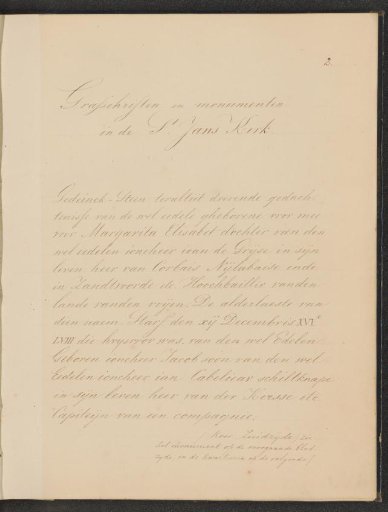 2.
Grafschriften en monumenten
in de St. Jans Kerk.
Gedeinck-Steen tervaltiet droevende gedach
tenisse van de wel eedele gheborene vor me
vror Margarita Elisabet dochter van den
wel eedelen joncheer jean de Grijse in sijn
leven heer van Corbais Nijlabaise ende
in Zandtvoorde etc Hoochbailler vanden
lande vanden vrijen. De alderlaeste van
dien naem. Starf den xij Decembris XVIc
LVIII die huysvror was van den wel Edelen
Geboren joncheer Jacob soon van den wel
Eedelen joncheer jan Cabeliau schiltknape
in sijn leven heer van der Kersse etc
Capiteijn van een compagnie.
(Noor Zuidzyde in
dat monument op de voorgaande blad
zyde, en de kwartieren op de volgende)